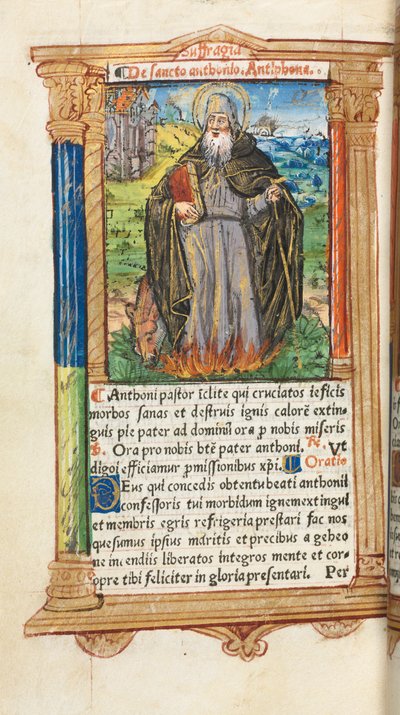 Suffragia
De sancto anthonio. Antiphona.
Anthoni pastor īclite qui cruciatos īeficis
morbos sanas et destruis ignis calorē extin-
guis pie pater ad dominū ora p nobis miseris
Ora pro nobis btē pater anthoni. Ut
digni efficiamur pmissionibus xp̄i. Oratio
Deus qui concedis obtentu beati anthonii
confessoris tui morbidum ignem extingui
et membris egris refrigeria prestari fac nos
quesumus ipsius maritis et precibus a gehen
ne incendiis liberatos integros mente et cor-
pore tibi feliciter in gloria presentari. Per